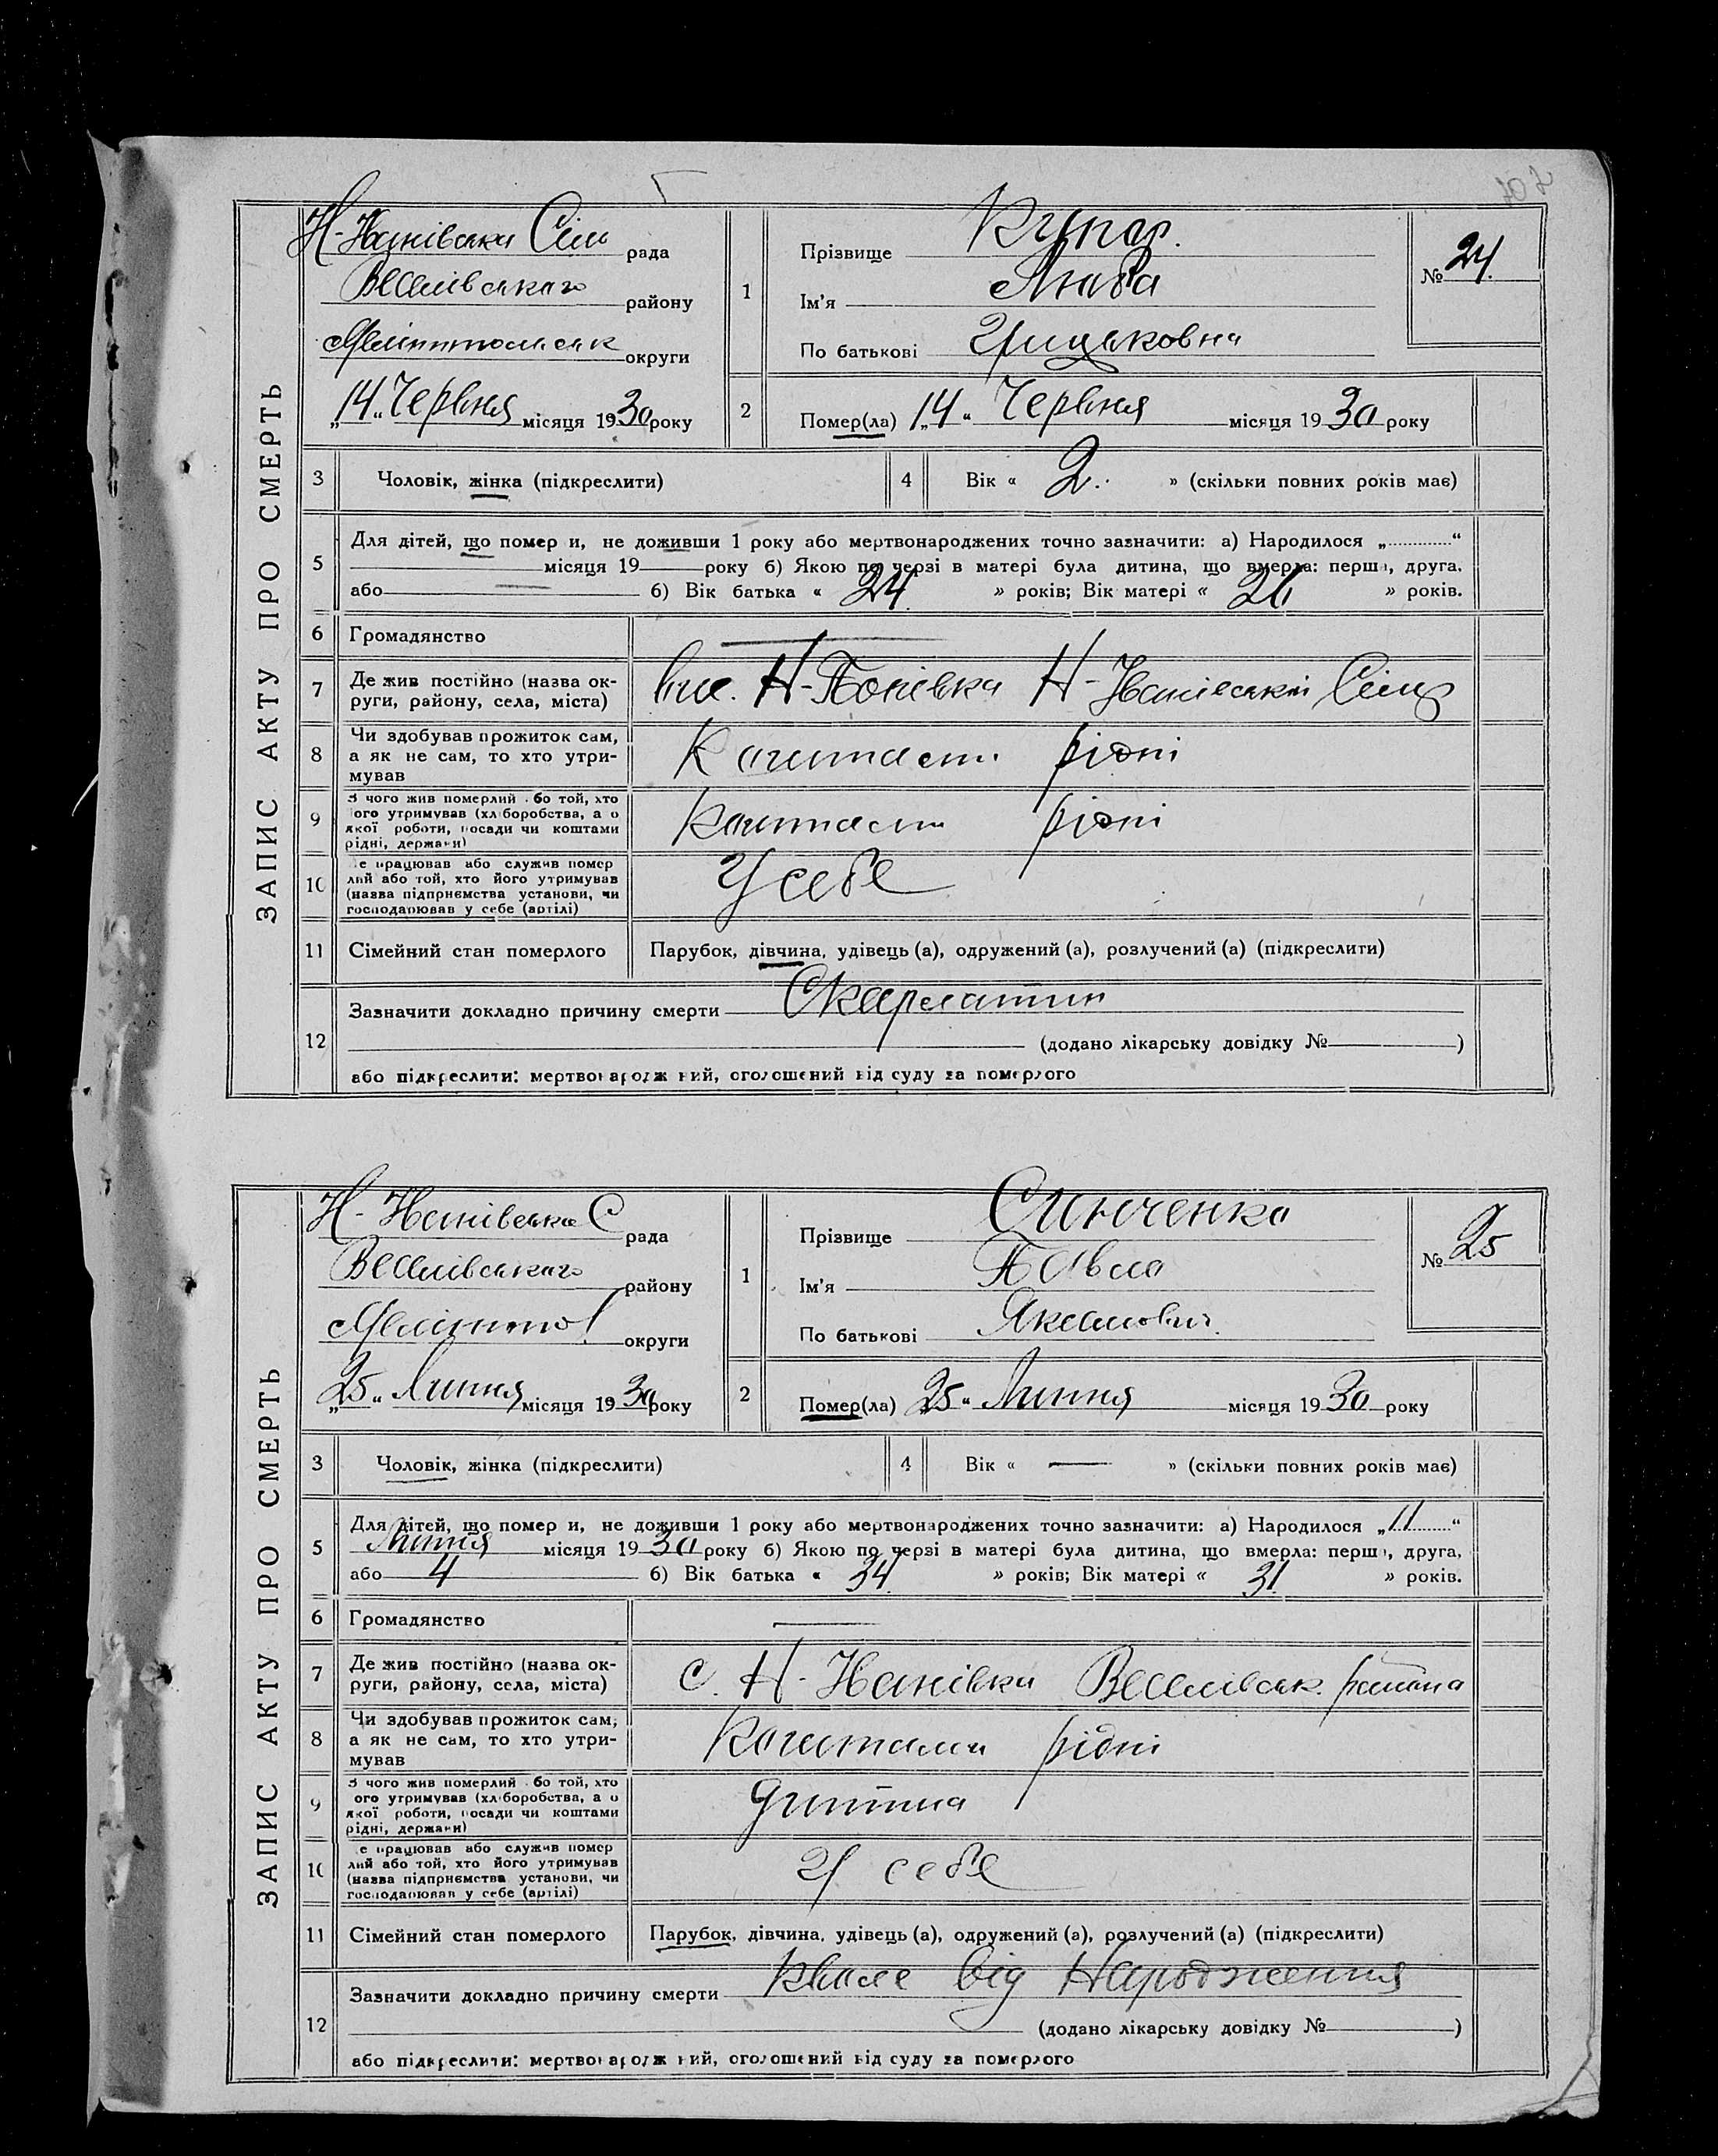 ЗАПИС АКТУ ПРО СМЕРТЬ
Н-Іванівська Сіль рада
Веселівського району
Мелітопольськ округи
„14“ Червня місяця 1930 року
1 Прізвище
Ім'я Люба
По батькові
№ 24.
2 Помер(ла) „14“ Червня місяця 1930 року
3 Чоловік, жінка (підкреслити)
4 Вік « 2. » (скільки повних років має)
5 Для дітей, що помер и, не доживши 1 року або мертвонароджених точно зазначити: а) Народилося „ “
місяця 19 року б) Якою по черзі в матері була дитина, що вмерла: перша, друга,
або — б) Вік батька « 24 » років; Вік матері « 26 » років.
6 Громадянство —
7 Де жив постійно (назва ок-
руги, району, села, міста) Н- Н-Іванівській
8 Чи здобував прожиток сам,
а як не сам, то хто утри-
мував Коштами рідні
9 З чого жив померлий або той, хто
його утримував (хліборобства, або
якої роботи, посади чи коштами
рідні, держави) Коштами рідні
10 Де працював або служив помер
лий або той, хто його утримував
(назва підприємства установи, чи
господарював у себе (артілі) У себе
11 Сімейний стан померлого Парубок, дівчина, удівець (а), одружений (а), розлучений (а) (підкреслити)
12 Зазначити докладно причину смерти Скарлатин
(додано лікарську довідку № )
або підкреслити: мертвонароджений, оголошений від суду за померлого
ЗАПИС АКТУ ПРО СМЕРТЬ
Н-Іванівська С рада
Веселівського району
Мелітопол округи
„25“ Липня місяця 1930 року
1 Прізвище
Ім'я Павло
По батькові
№ 25
2 Помер(ла) „25“ Липня місяця 1930 року
3 Чоловік, жінка (підкреслити)
4 Вік « — » (скільки повних років має)
5 Для дітей, що помер и, не доживши 1 року або мертвонароджених точно зазначити: а) Народилося „11“
Липня місяця 1930 року б) Якою по черзі в матері була дитина, що вмерла: перша, друга,
або 4 б) Вік батька « 34 » років; Вік матері « 31 » років.
6 Громадянство —
7 Де жив постійно (назва ок-
руги, району, села, міста) с. Н-Іванівка Веселівськ. района
8 Чи здобував прожиток сам,
а як не сам, то хто утри-
мував Коштами рідні
9 З чого жив померлий або той, хто
його утримував (хліборобства, або
якої роботи, посади чи коштами
рідні, держави) Дитина
10 Де працював або служив помер
лий або той, хто його утримував
(назва підприємства установи, чи
господарював у себе (артілі) У себе
11 Сімейний стан померлого Парубок, дівчина, удівець (а), одружений (а), розлучений (а) (підкреслити)
12 Зазначити докладно причину смерти Кволе від Народження
(додано лікарську довідку № )
або підкреслити: мертвонароджений, оголошений від суду за померлого